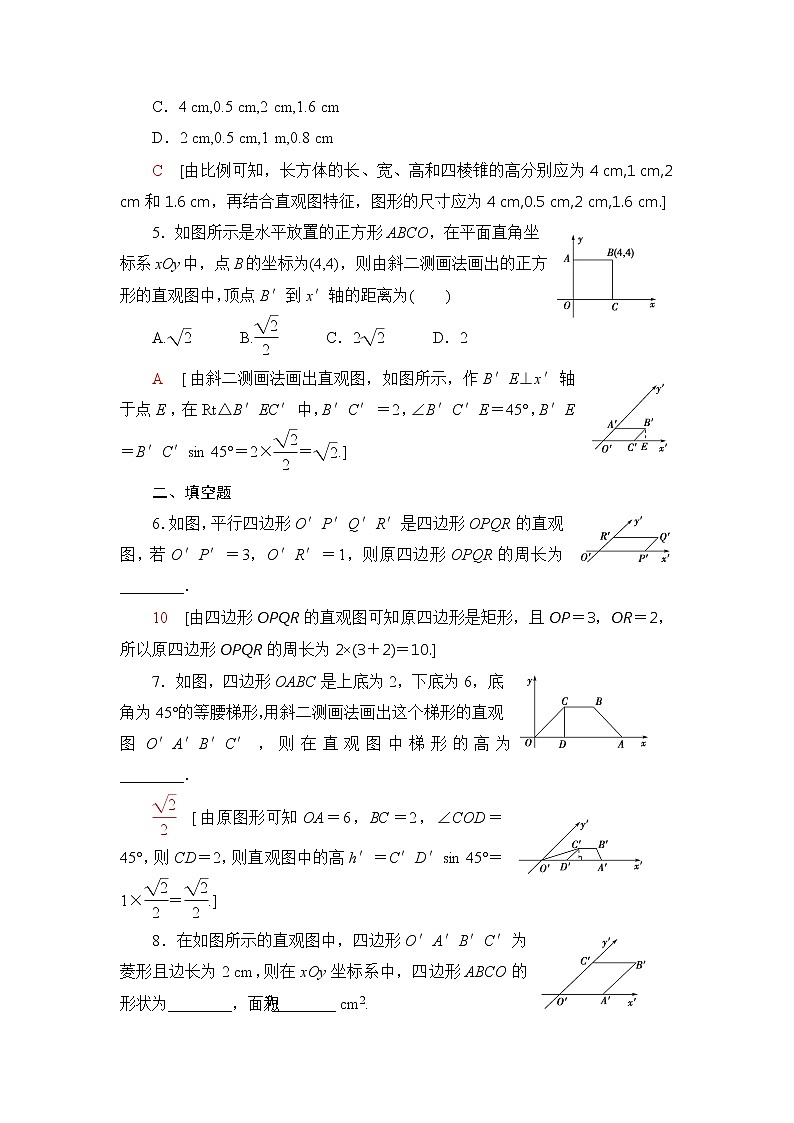 C．4 cm,0.5 cm,2 cm,1.6 cm
D．2 cm,0.5 cm,1 m,0.8 cm
C [由比例可知，长方体的长、宽、高和四棱锥的高分别应为 4 cm,1 cm,2
cm 和 1.6 cm，再结合直观图特征，图形的尺寸应为 4 cm,0.5 cm,2 cm,1.6 cm.]
5．如图所示是水平放置的正方形 ABCO，在平面直角坐
标系 xOy 中，点 B 的坐标为(4,4)，则由斜二测画法画出的正方
形的直观图中,顶点 B′到 x′轴的距离为( )
y
A
B(4,4)
O
C
x
A.√2 B.√2/2 C．2√2 D．2
A [由斜二测画法画出直观图，如图所示，作 B′E⊥x′轴
于点 E，在 Rt△B′EC′中,B′C′=2,∠B′C′E=45°,B′E
=B′C′sin 45°=2×√2/2=√2.]
y′
A′
B′
O′
C′
E
x′
二、填空题
6.如图,平行四边形 O′P′Q′R′是四边形 OPQR 的直观
图,若 O′P′=3，O′R′=1，则原四边形 OPQR 的周长为
________．
y′
R′
Q′
O′
P′
x′
10 [由四边形 OPQR 的直观图可知原四边形是矩形，且 OP=3，OR=2，
所以原四边形 OPQR 的周长为 2×(3+2)=10.]
7．如图，四边形 OABC 是上底为 2，下底为 6，底
角为 45°的等腰梯形,用斜二测画法画出这个梯形的直观
图 O′A′B′C′，则在直观图中梯形的高为
________．
y
C
B
O
D
A
x
√2/2 [由原图形可知 OA=6，BC=2，∠COD=
45°,则 CD=2,则直观图中的高 h′=C′D′sin 45°=
1×√2/2=√2/2.]
y′
C′
B′
O′
D′
A′
x′
8．在如图所示的直观图中，四边形 O′A′B′C′为
菱形且边长为 2 cm,则在 xOy 坐标系中，四边形 ABCO 的
形状为________，面积为________ cm².
y′
C′
B′
O′
A′
x′